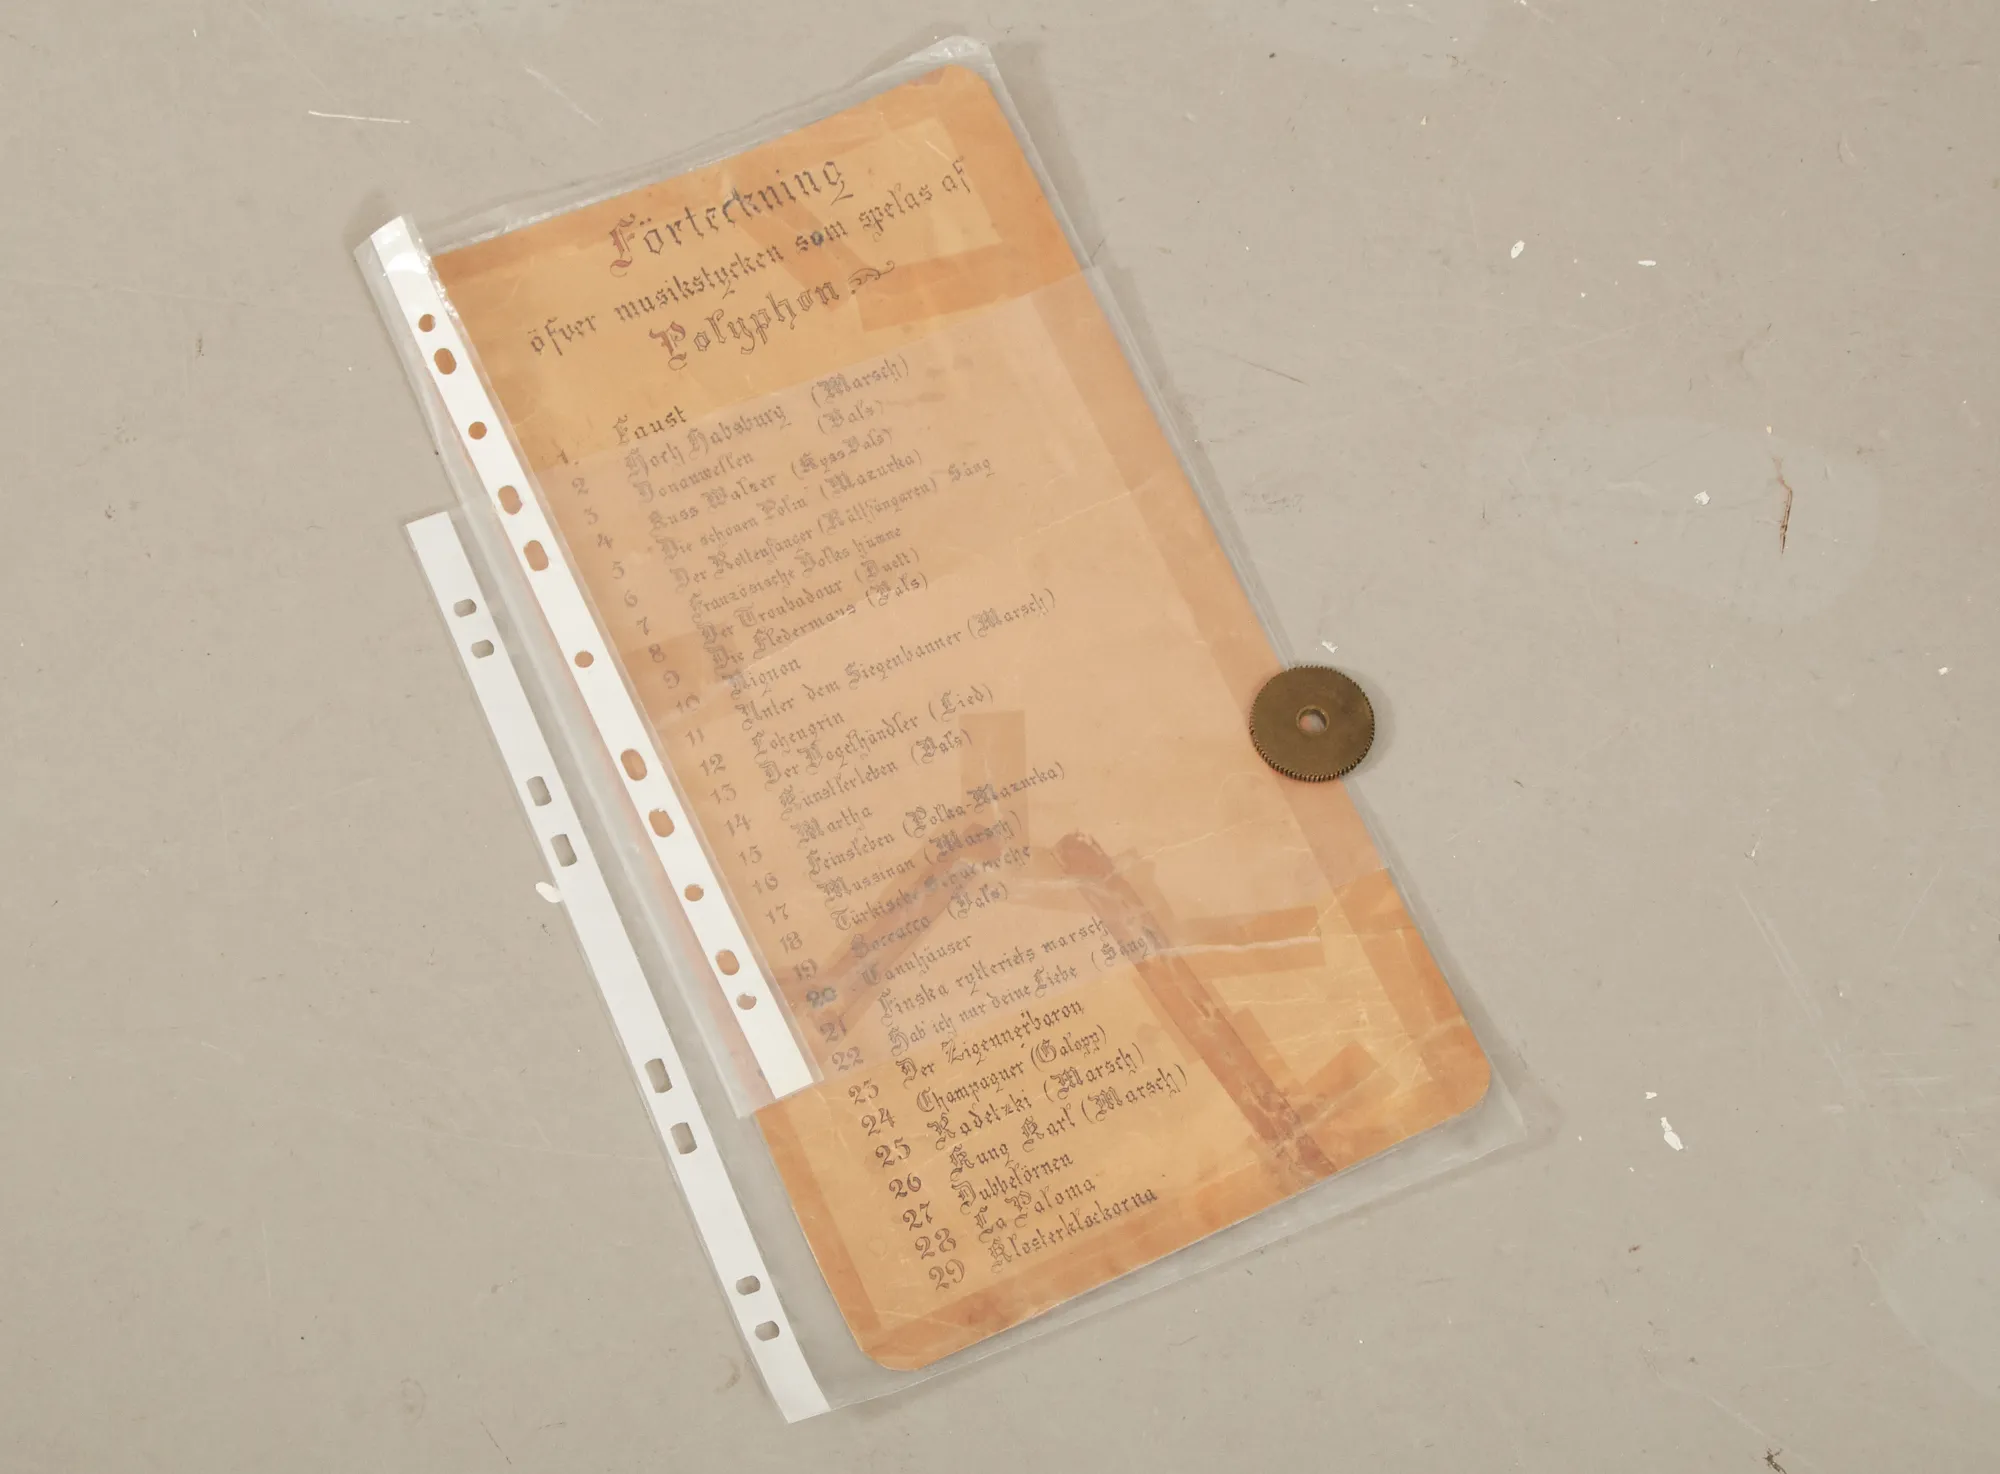 Förteckning
öfver musikstycken som spelas af
Polyphon
1. Faust
2 Hoch Habsburg (Marsch)
3 Donauwellen (Vals)
4 Kuss Walzer (Kyss Vals)
5 Die schönen Polin (Mazurka)
6 Der Rottenfänger (Råttfångaren) Sång
7 Französische Volks hümne
8 Der Troubadour (Duett)
9 Die Fledermaus (Vals)
10 Mignon
11 Unter dem Siegenbanner (Marsch)
12 Lohengrin
13 Der Vogelhändler (Lied)
14 Künstlerleben (Vals)
15 Martha
16 Feinsleben (Polka-Mazurka)
17 Mussinan (Marsch)
18 Türkische
19 Boccacco (Vals)
20 Tannhäuser
21 Finska rytteriets marsch
22 Hab' ich nur deine Liebe (Sång)
23 Der Zigeunerbaron
24 Champagner (Galopp)
25 Radetzki (Marsch)
26 Kung Karl (Marsch)
27 Dubbelörnen
28 La Paloma
29 Klosterklockorna